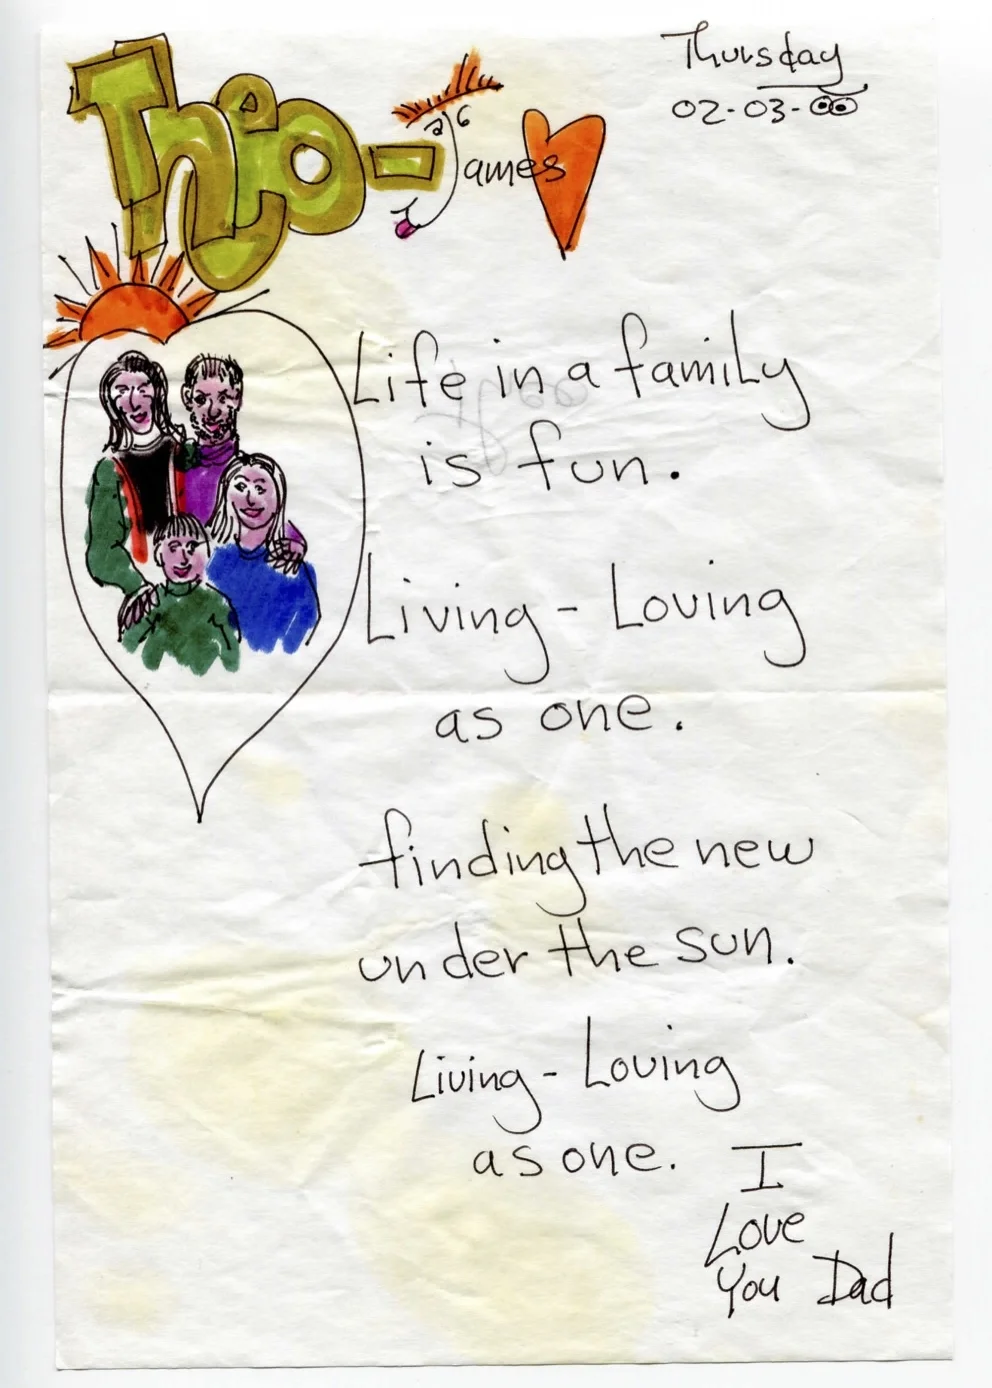 Thursday
02-03-00
Theo-James
Life in a family
is fun.
Living - Loving
as one.
finding the new
under the sun.
Living - Loving
as one.
I
Love
You Dad